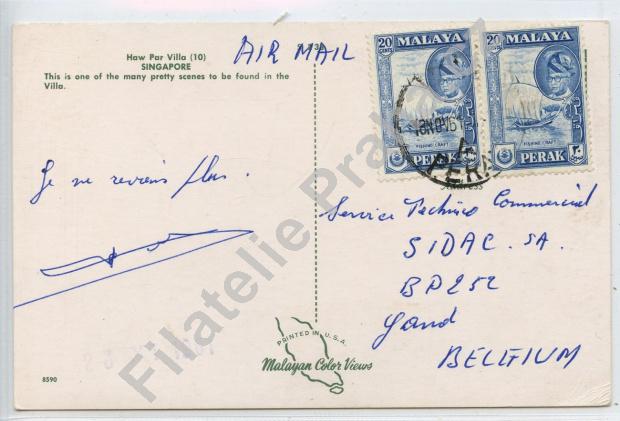 Haw Par Villa (10)
SINGAPORE
This is one of the many pretty scenes to be found in the
Villa.
AIR MAIL
20 CENTS
MALAYA
FISHING CRAFT
PERAK
20 CENTS
MALAYA
FISHING CRAFT
PERAK
٢٠
PERA
Je ne reviens plus.
Service Technico Commercial
SIDAC. SA.
BP252
Gand
BELGIUM
PRINTED IN U.S.A.
Malayan Color Views
8590
Filatelie Pra